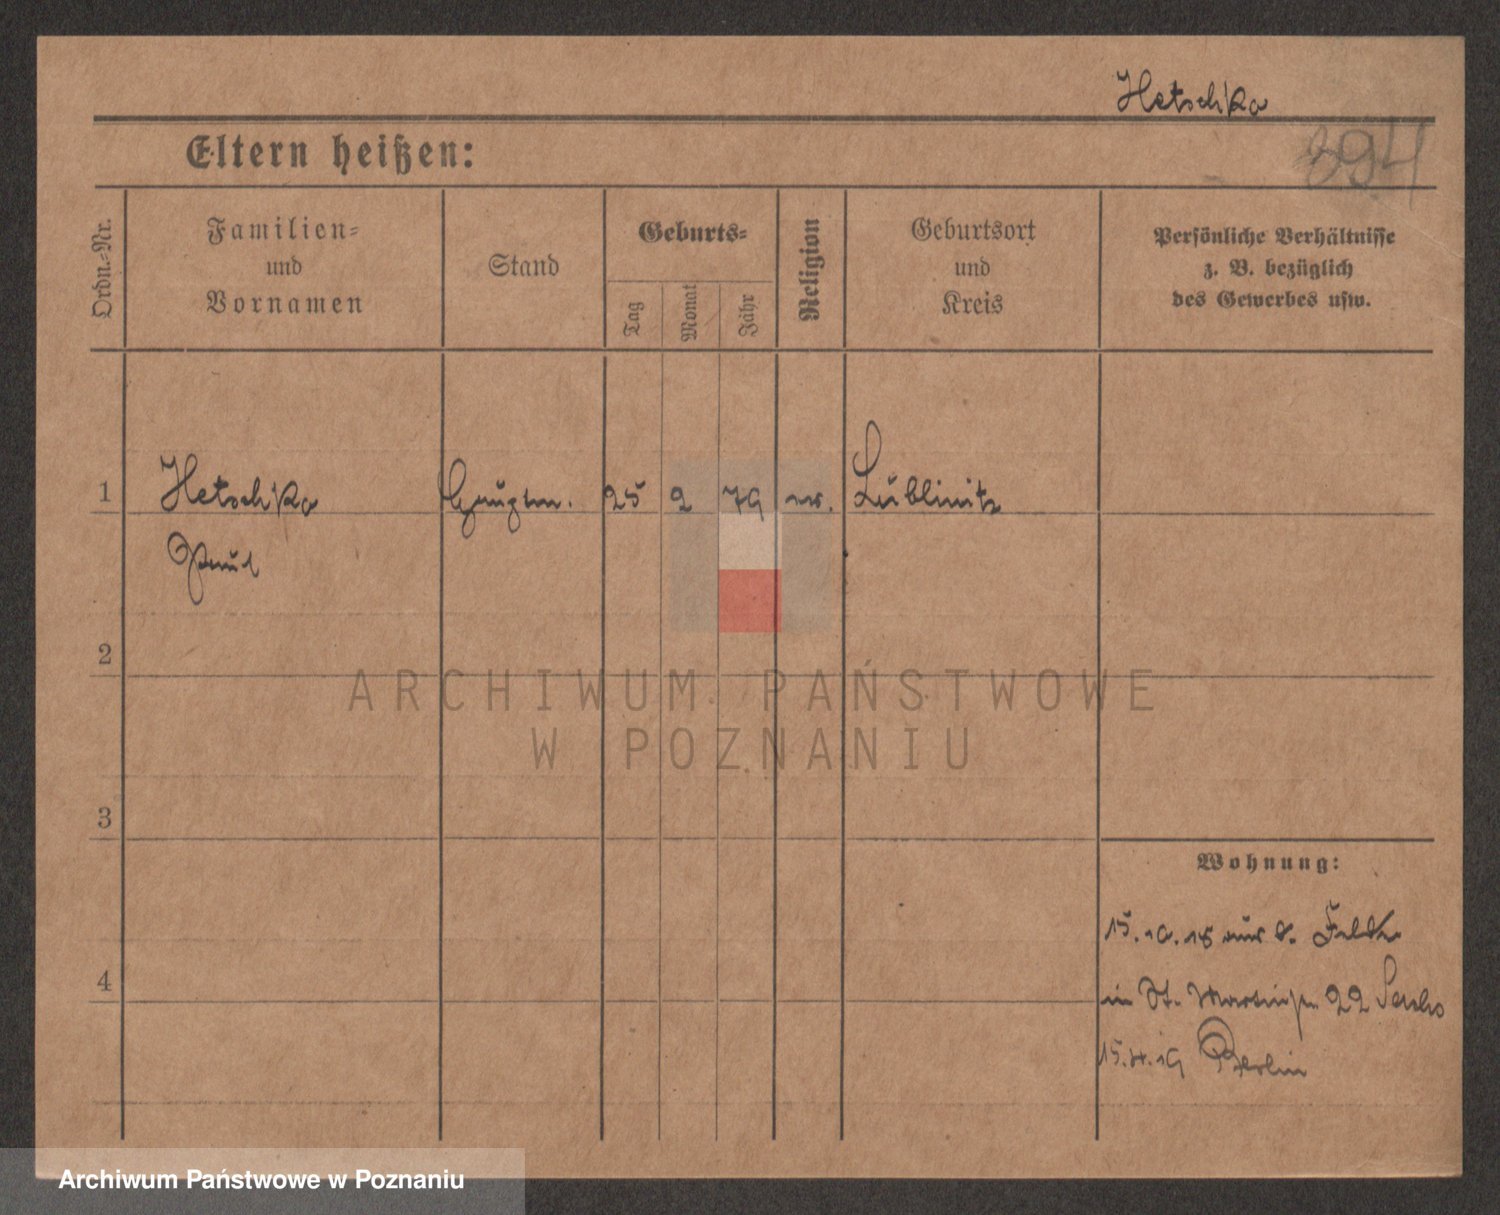 Hetschko
294
Eltern heißen:
Ordn.-Nr.
Familien-
und
Vornamen
Stand
Geburts-
Tag
Monat
Jahr
Religion
Geburtsort
und
Kreis
Persönliche Verhältnisse
z. B. bezüglich
des Gewerbes usw.
1 Hetschko Hauptm. 25 2 79 ev. Lublinitz
Paul
2
ARCHIWUM PAŃSTWOWE
W POZNANIU
3
Wohnung:
15.10.18 aus d. Felde
4
in St. Martinstr. 22
15.4.19 Berlin
Archiwum Państwowe w Poznaniu